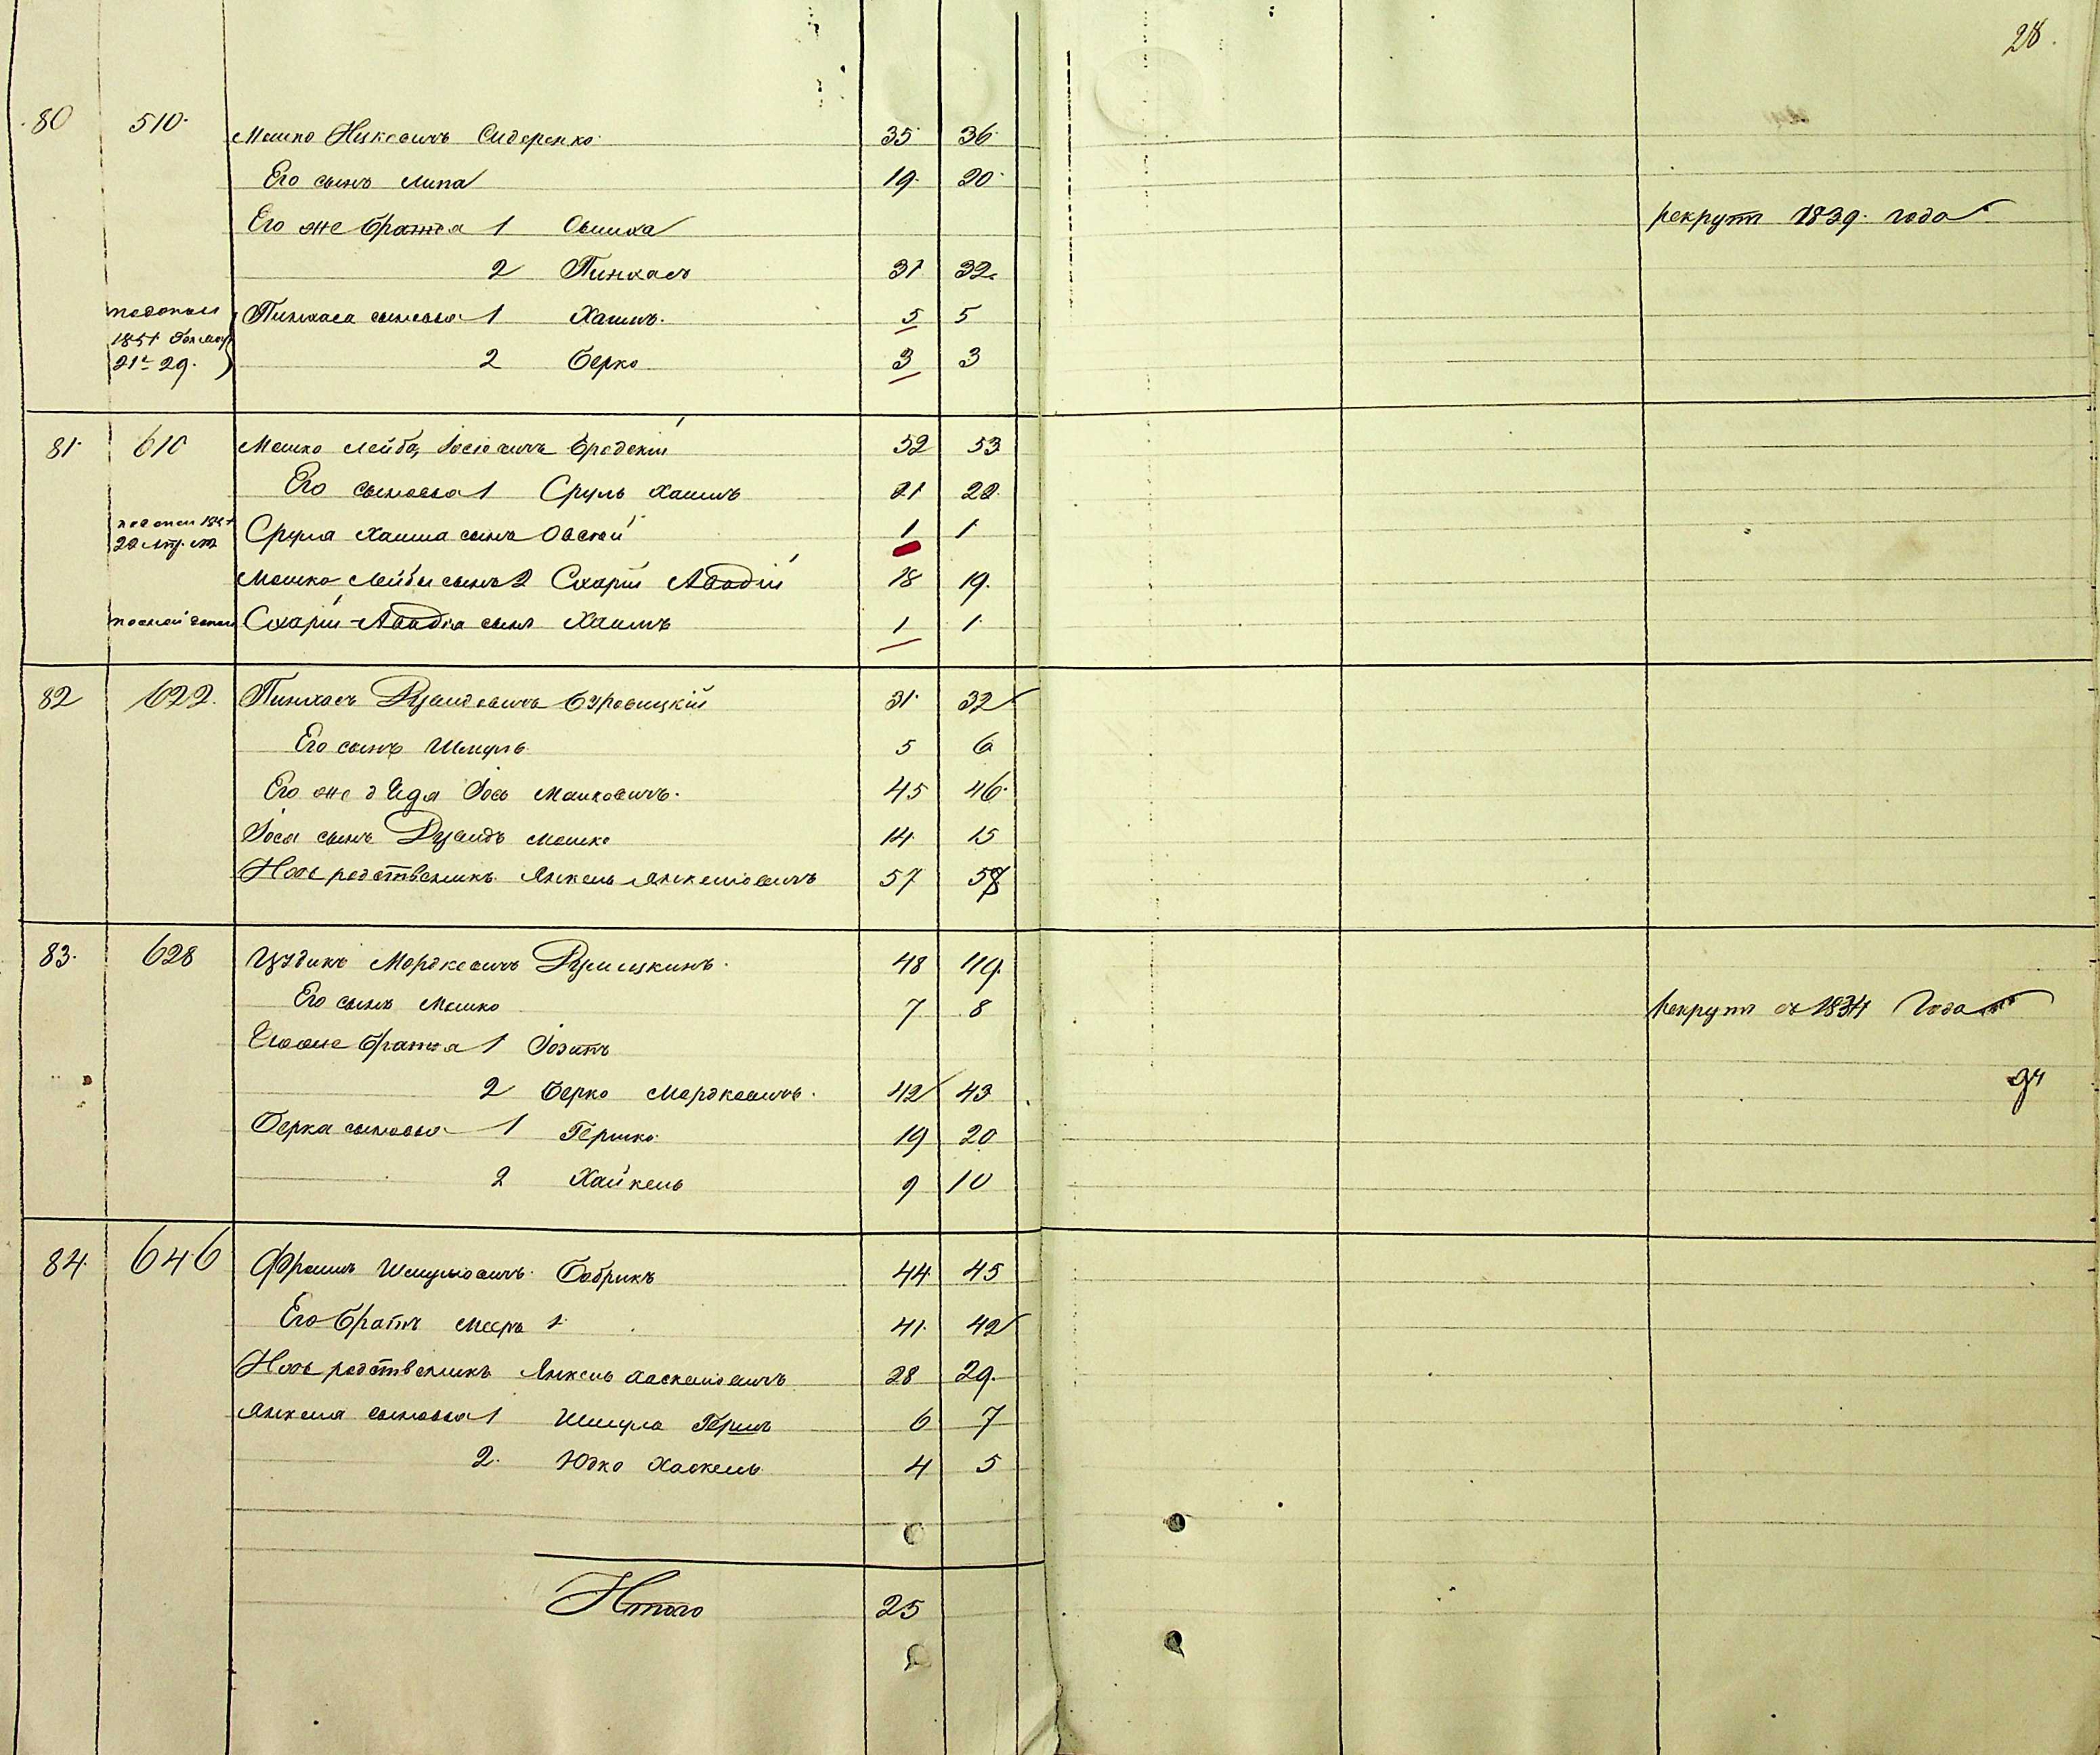 28.
80 510. Мошко Ицковичъ Сидоренко 35 36
Его сынъ Липа 19 20
Его же братья 1 Овшиха рекрутъ 1839. года
2 Пинхасъ 31 32
Пинхаса сыновья 1 Хаимъ. 5 5
1851
21 29. 2 Берко 3 3
81 610 Мошко Лейба Iосiовичъ Бродскiй 52 53
Его сыновья 1 Сруль Хаимъ 21 22
Сруля Хаима сынъ Овсей 1 1
Мошко Лейбы сынъ 2 Схарiй Авадiй 18 19.
Схарiй Авадiя сынъ Хаимъ 1 1
82 622. Пинхасъ Дувидовичъ Буровицкiй 31 32
Его сынъ Шмуль 5 6
Его же дядя Iось Мошковичъ. 45 46
Iося сынъ Дувидъ Мошко 14 15
Ихъ родственникъ Янкель Янкелiовичъ 57 58
83. 628 Мордковичъ 48 49
Его сынъ Мошко 7 8 рекрутъ съ 1834 года
Его же братья 1
2 Берко Мордковичъ. 42 43
Берка сыновья 1 Гершко 19 20
2 Хайкель 9 10
84. 646 Фроимъ Шмулiовичъ Бобрикъ 44 45
Его братъ Мееръ 1 41 42
Ихъ родственникъ Янкель Хаскелiовичъ 28 29.
Янкеля сыновья 1 Шмуль Гершъ 6 7
2. Юдко Хаскель 4 5
Итого 25